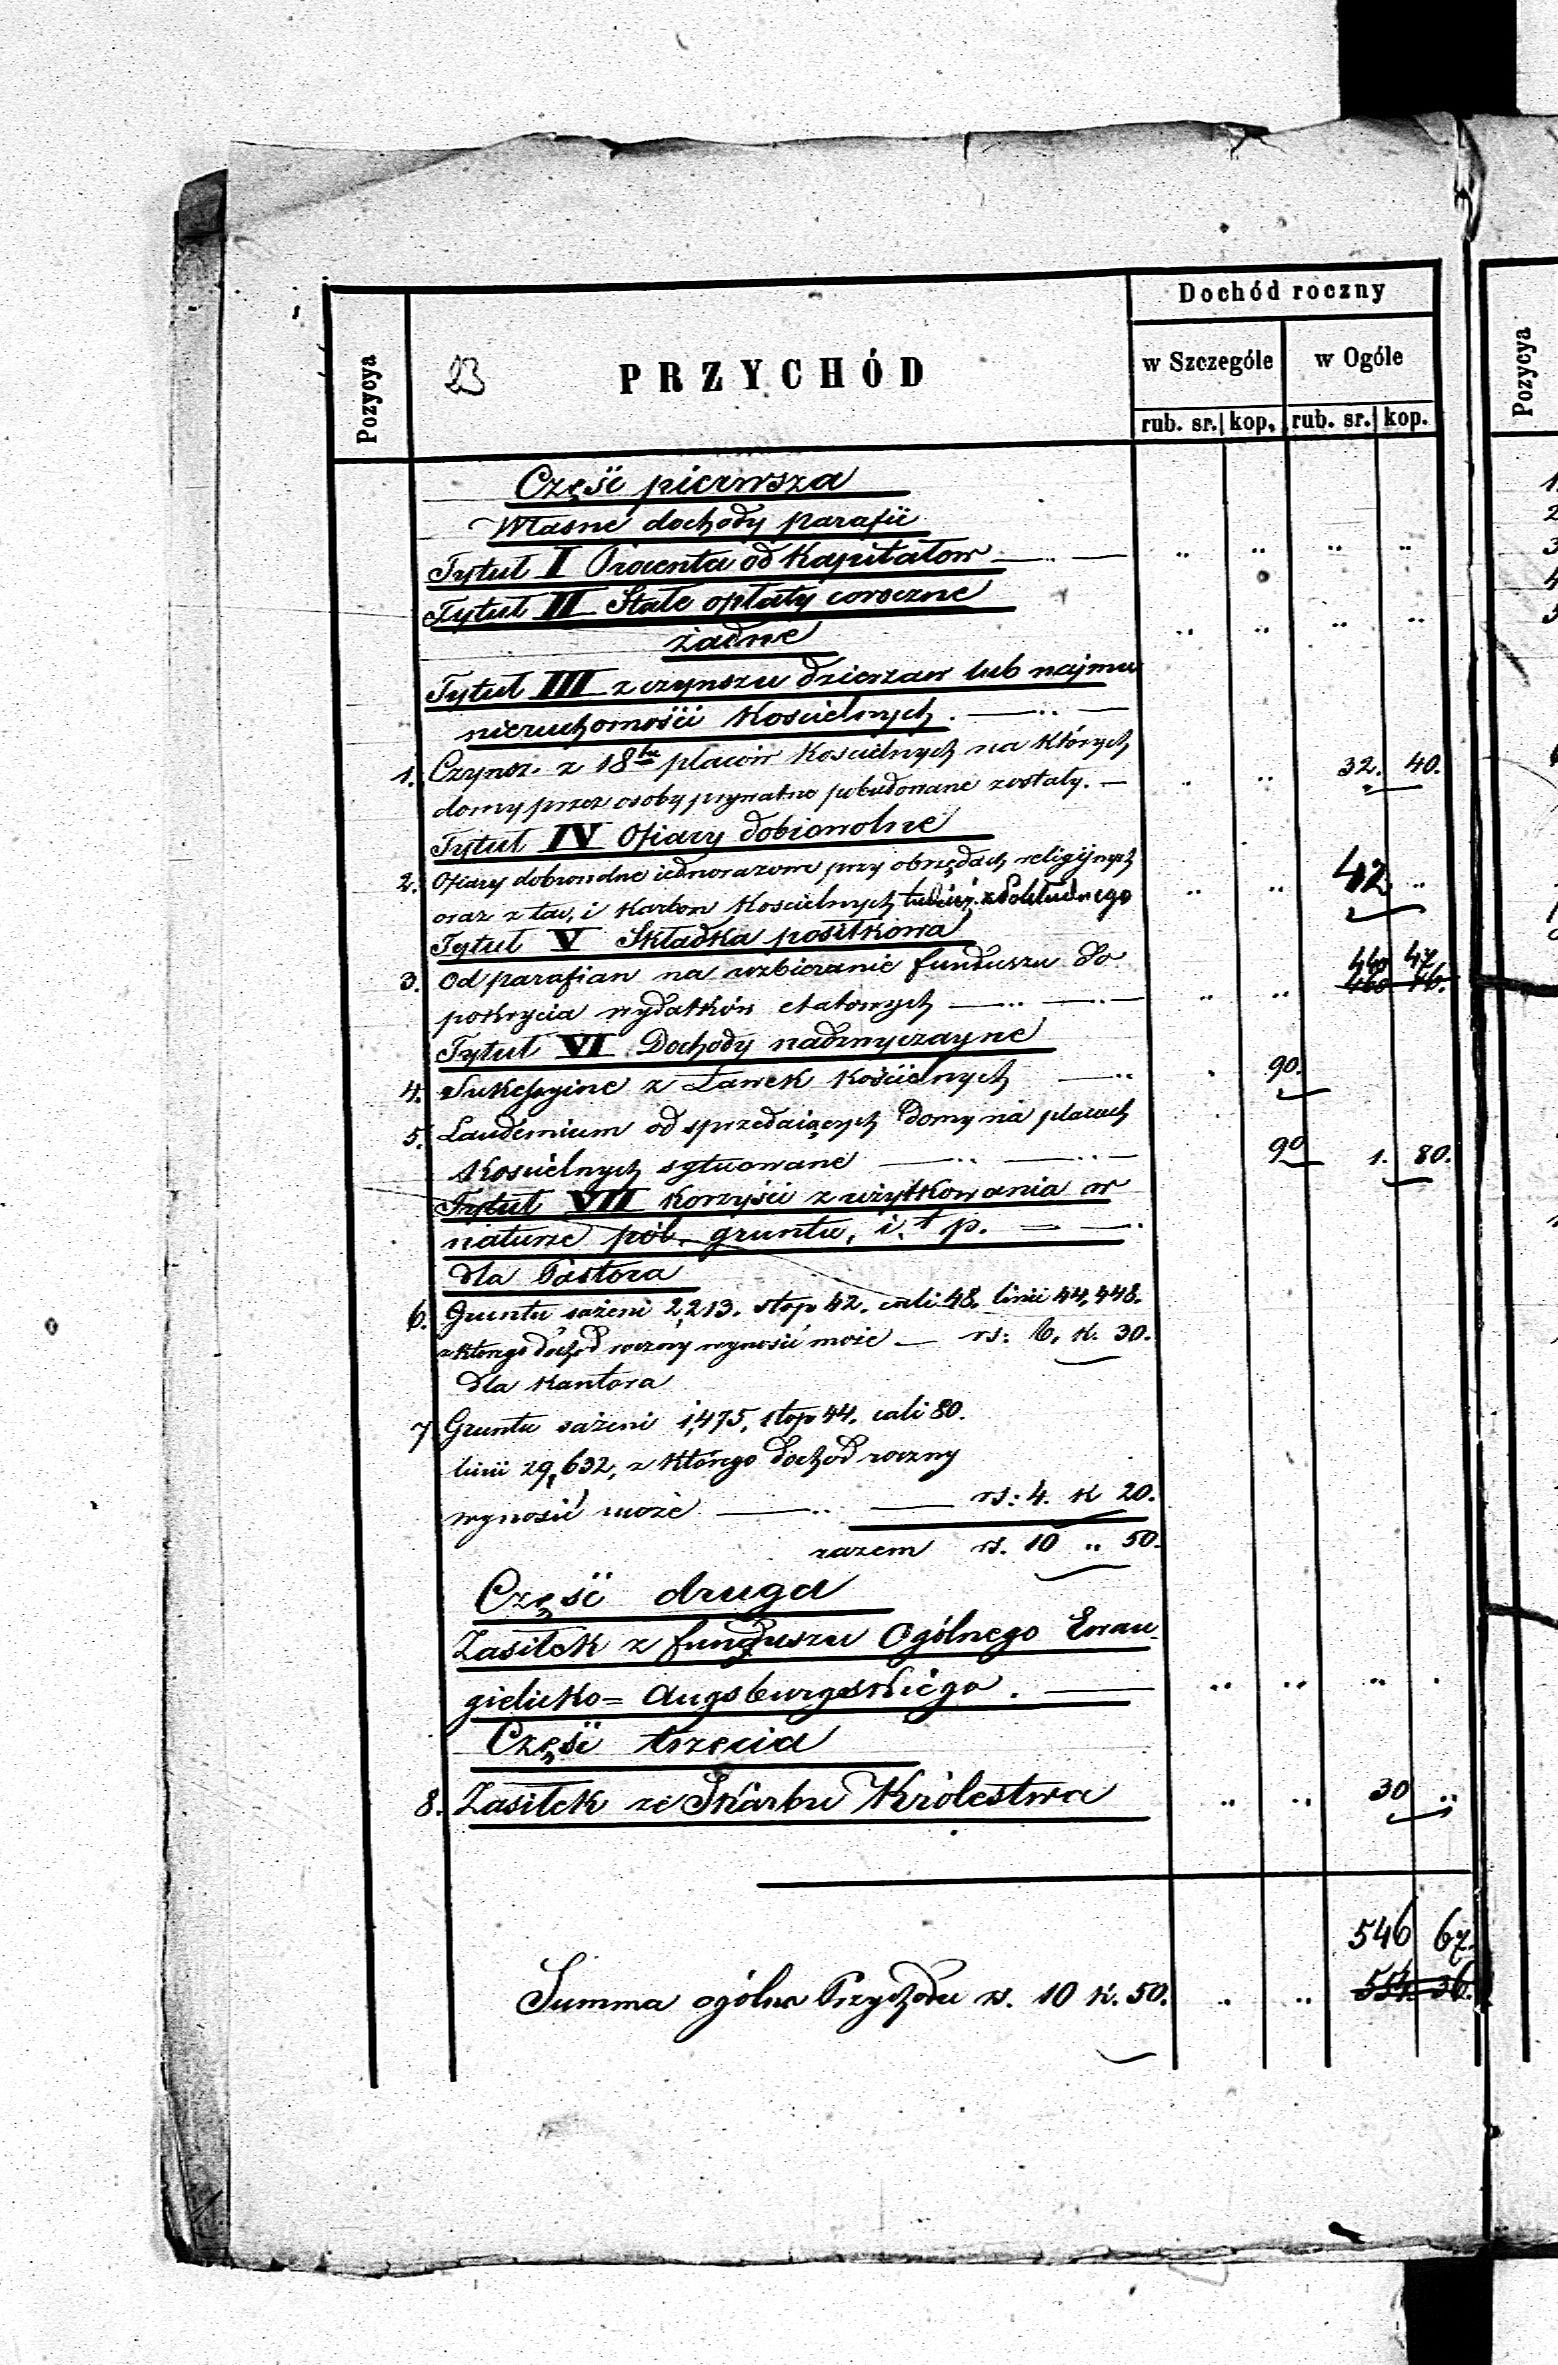 Dochód roczny
Pozycya
23
PRZYCHÓD
w Szczególe
w Ogóle
Pozycya
rub. sr. kop. rub. sr. kop.
Część pierwsza
Własne dochody parafii
Tytuł I Procenta od Kapitałow
Tytuł II Stałe opłaty coroczne
żadne
Tytuł III z czynszu dzierzaw lub najmu
nieruchomości Kościelnych.
1. Czynsz z 18tu placów Kościelnych na których
domy przez osoby prywatne pobudowane zostały. 32. 40.
Tytuł IV Ofiary dobrowolne
2. Ofiary dobrowolne iednorazowe przy obrzędach religijnych
oraz z tac, i Karbon Kościelnych tudzież z 42
Tytuł V Składka posiłkowa
3. Od parafian na uzbieranie funduszu do 440 47
pokrycia wydatków etatowych 460 16.
Tytuł VI Dochody nadzwyczayne
4. Sukcessyine z Ławek Kościelnych 90.
5. Laudemium od sprzedaiących domy na placach
Kościelnych sytuowane 90 1. 80.
Tytuł VII Korzyści z użytkowania w
naturze pól, gruntu, i. t p.
dla Pastora
6. Gruntu sażeni 2,213. stop 42. cali 48. linii 44,448.
z którego dochod roczny wynosić może rs: 6, k. 30.
dla Kantora
7 Gruntu sażeni 1,475, stop 44. cali 80.
linii 29,632, z którego dochod roczny
wynosić może rs: 4. k 20.
razem rs. 10 " 50.
Część druga
Zasiłek z funduszu Ogólnego Ewan-
gielicko= Augsburgskiego.
Część trzecia
8. Zasiłek ze Skarbu Królestwa 30
546 67.
Summa ogólna Przychodu rs. 10 k. 50. 554. 36.